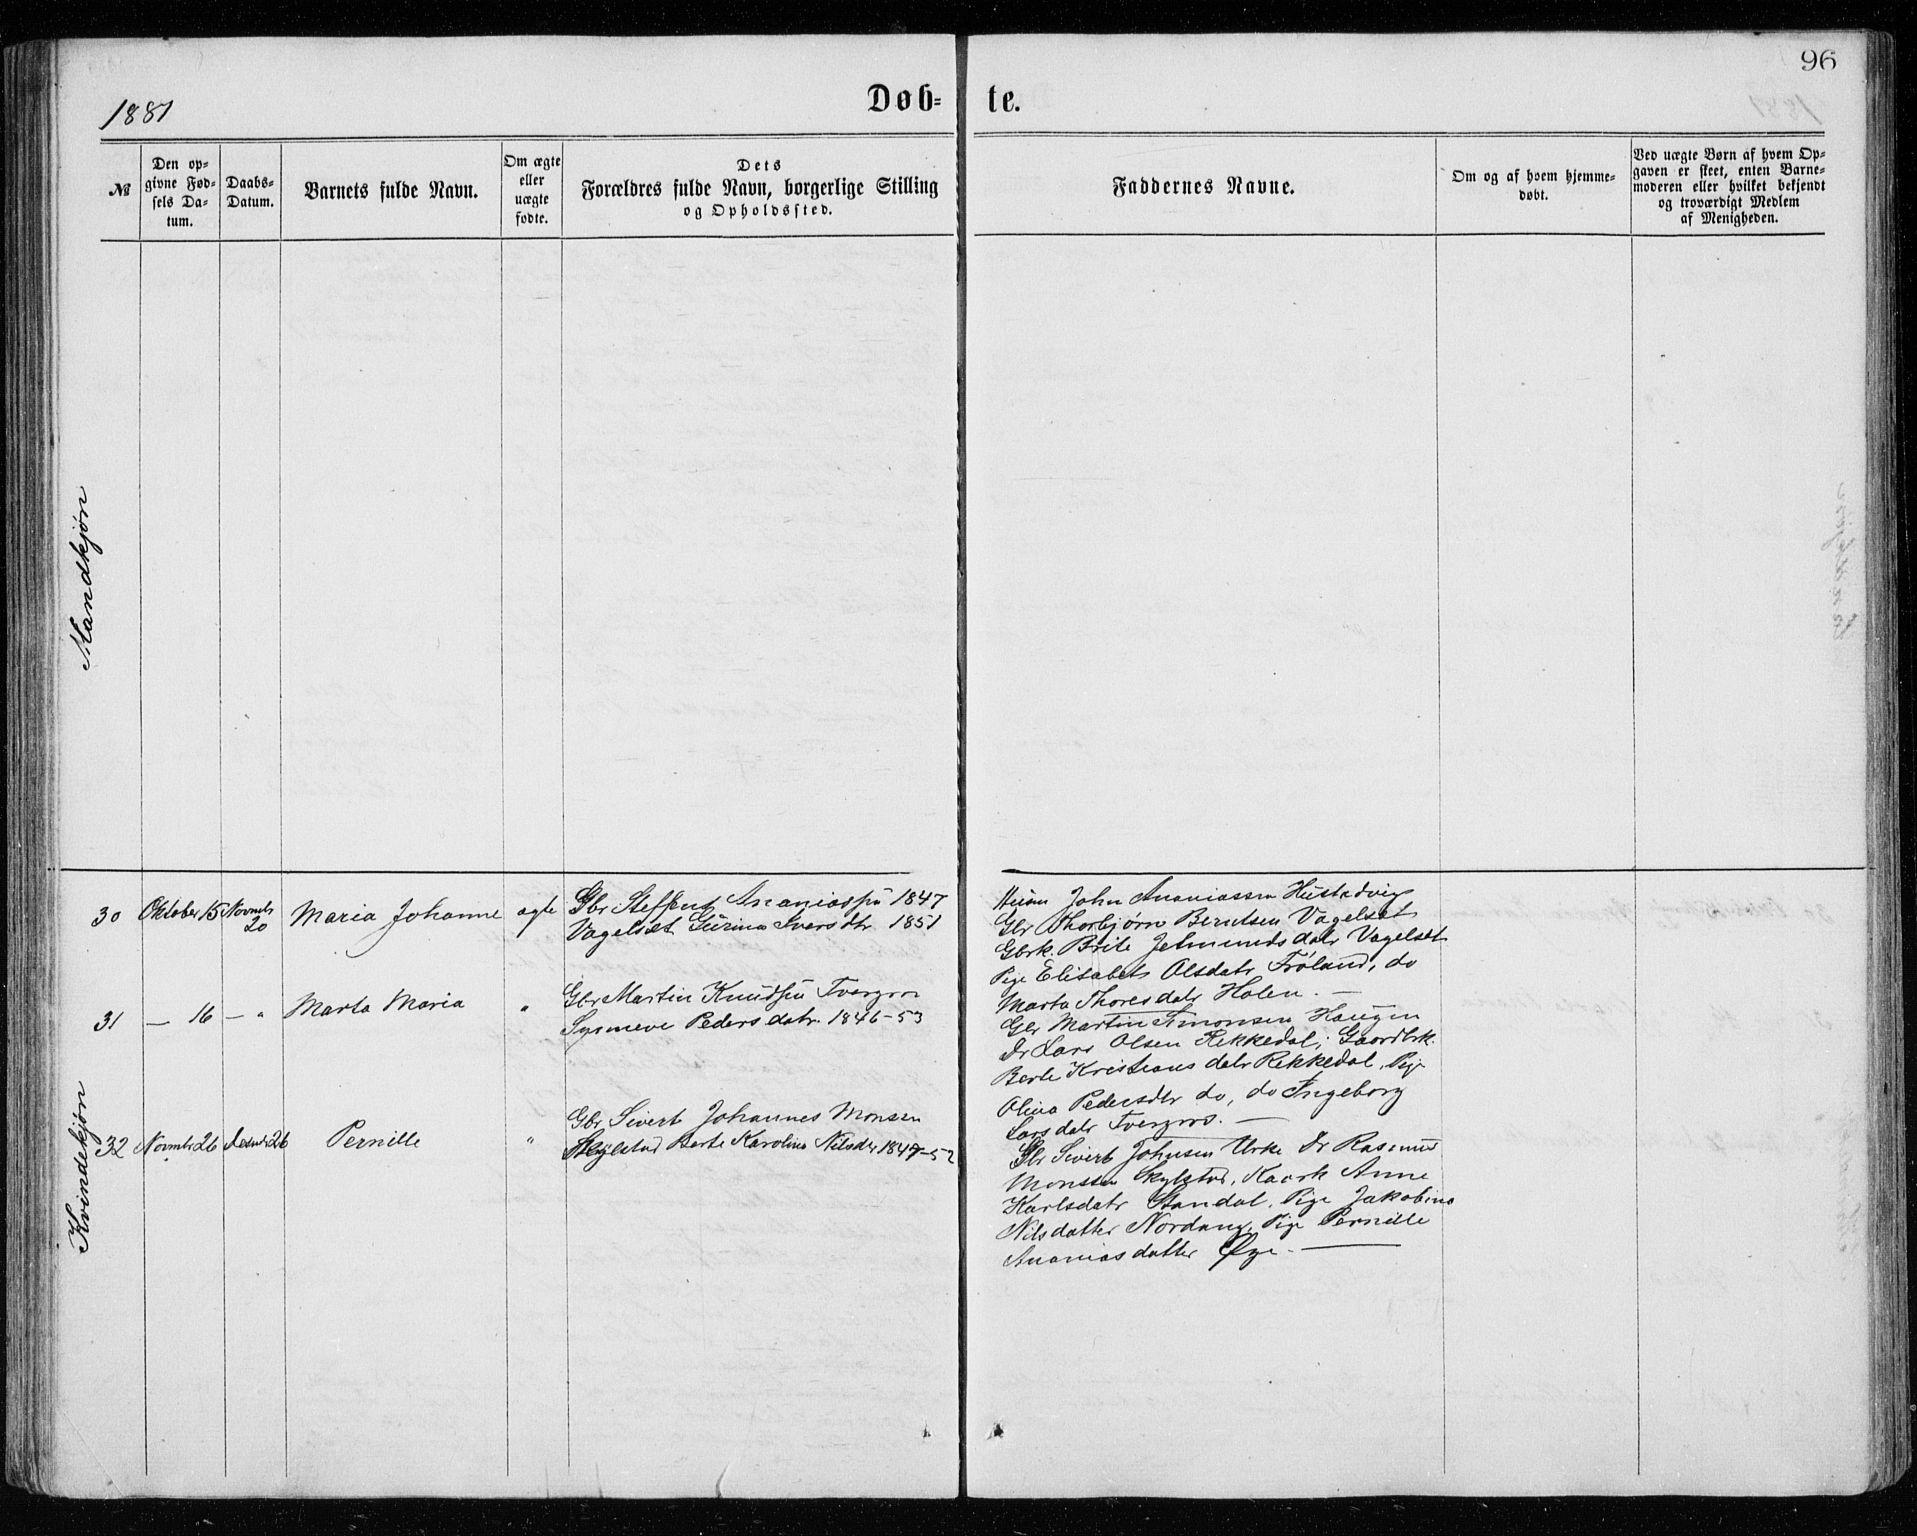 96
1881
Døb-
te.
№
Den op-
givne Fød-
sels Da-
tum.
Daabs-
Datum.
Barnets fulde Navn.
Om ægte
eller
uægte
fødte.
Dets
Forældres fulde Navn, borgerlige Stilling
og Opholdssted.
Faddernes Navne.
Om og af hvem hjemme-
døbt.
Ved uægte Børn af hvem Op-
gaven er skeet, enten Barne-
moderen eller hvilket bekjendt
og troværdigt Medlem
af Menigheden.
Mandkjøn
Kvindekjøn
30 Oktober 15 Novmbr
20
Maria Johanne
ægte
Gbr Steffen Ananiassen 1847
Vagelset Gurina Iversdtr 1851
John Ananiassen Hustadvig
Gbr Thorbjørn Berntsen Vagelset
Gbrk. Brite Jetmundsdatr Vagelset
Pige Elisabet Olsdatr Frøland, do
Marta Thoresdatr Holen. —
31 — 16 — "
Marta Maria
"
Gbr Martin Knudsen Tvergros
Synneve Pedersdatr. 1846-53
Gbr Martin Simonsen Haugen
Dr Lars Olsen Rekkedal, Gaardbrk.
Berte Kristiansdatr Rekkedal, Pige
Oliva Pedersdtr do, do Ingeborg
Larsdatr Tvergros. —
32 Novmbr 26 Decmbr 26
Pernille
"
Gbr Sivert Johannes Monsen
Skylstad Berte Karolina Nilsdr 1847-52
Gbr Sivert Johnsen Urke Dr Rasmus
Monssen Skylstad, Kaark Anne
Karlsdatr Standal, Pige Jakobina
Nilsdatter Nordang, Pige Pernille
Ananiasdatter Øye. —